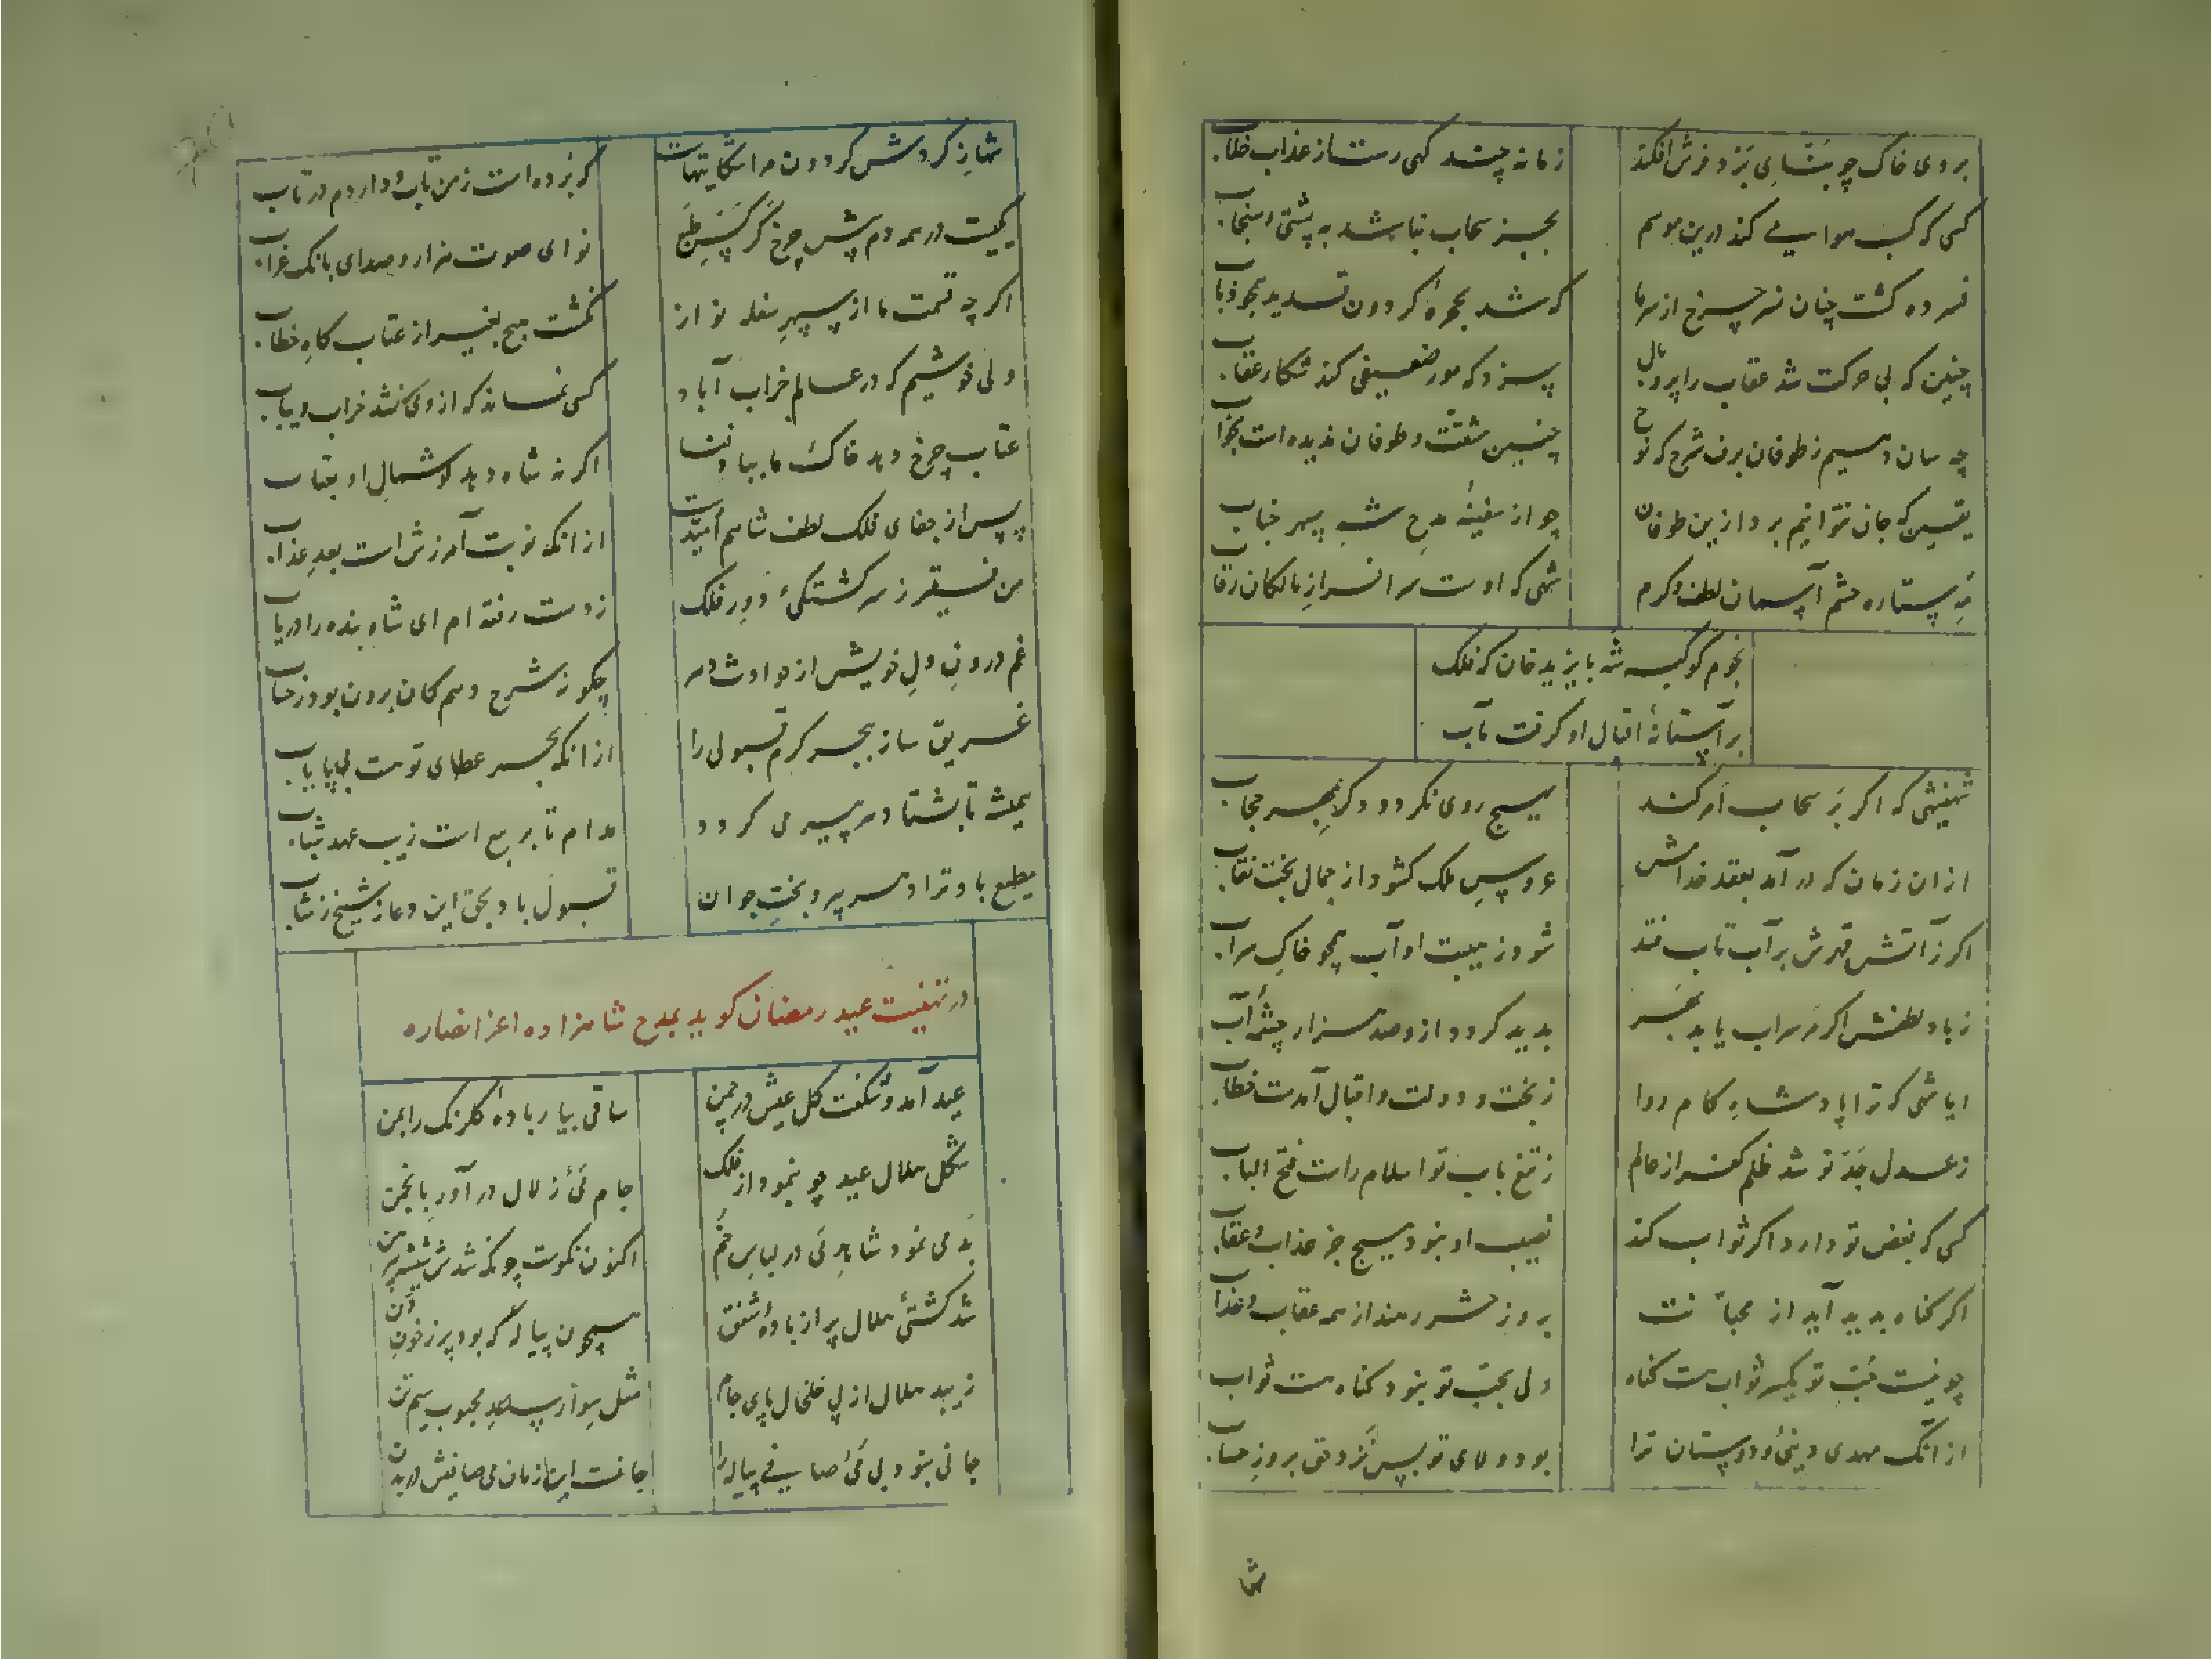 بروی خاک چو بنشاندی بَرَد و فرش افکند
زمانه چند کهی رست از عذاب خلاب
کسی که کسب هوایی کند درین موسم
بجز سحاب نباشد به پشتی و سنجاب
فسرده گشت چنان نسر چرخ از سرما
که شد بحمرهٔ گردون
چنین که بی حرکت شد عقاب را پر و بال
سزد که مور ضعیفی کند شکار عقاب
چه سان دهیم ز طوفان برف شرح که نوح
چنین مشقت و طوفان ندیده است بخواب
یقین که جان نتوانیم برد ازین طوفان
جز از سفینهٔ مدح شه سپهر جناب
مه ستاره حشم آسمان لطف و کرم
شهی که اوست سرافراز مالکان رقاب
نجوم کوکبه شه بایزید خان که فلک
بر آستانهٔ اقبال او گرفت مآب
شهنشهی که اگر بر سحاب امر کند
بهیچ روی نگردد دگر بمهر حجاب
از ان زمان که در آمد بعقد خدامش
عروس ملک گشود از جمال بخت نقاب
اگر ز آتش قهرش بر آب تاب فتد
شود ز هیبت او آب همچو خاک سراب
ز باد لطفش اگر مر سراب یابد بهر
پدید گردد ازو صد هزار چشمهٔ آب
ایا شهی که ترا پادشاه کام روا
ز بخت و دولت و اقبال آمدست خطاب
ز عدل جد تو شد ظلم کفر از عالم
ز تیغ باب تو اسلام راست فتح الباب
کسی که بغض تو دارد اگر ثواب کند
نصیب او نبود هیچ جز عذاب و عقاب
اگر گناه پدید آید از محبانت
بروز حشر رهند از همه عقاب و عذاب
چو نیست حب تو یکسر ثواب هست گناه
ولی بحب تو نبود گناه هست ثواب
از آنک مهدی دینی و دوستان ترا
بود ولای تو بس نزد حق بروز حساب
شها
شها ز گردش گردون مرا شکایتهاست
که برده است ز من تاب و دارد م در تاب
یکیست در همه دم پیش چرخ کر
نوای صوت هزار و صدای بانگ غراب
اگر چه قسمت ما از سپهر سفله نواز
نگشت هیچ بغیر از عتاب گاه خطاب
ولی خوشیم که در عالم خراب آباد
کسی نماند که از وی نشد خراب و یباب
عتاب چرخ دهد خاک ما بباد فنا
اگر نه شاه دهد گوشمال او بعتاب
پس از جفای فلک لطف شاهم امیدست
از انکه نوبت آمرزش است بعد عذاب
من فقیر ز سرگشتگی دور فلک
ز دست رفته ام ای شاه بنده را دریاب
غم درون دل خویش از حوادث دهر
چگونه شرح دهم کان برون بود ز حساب
غریق ساز ببحر کرم قبولی را
از انکه بحر عطای توست بی پایاب
همیشه تا بشتا دهر پیر می گردد
مدام تا بربیع است زیب عهد شباب
مطیع باد ترا دهر پیر و بخت جوان
قبول باد بحق این دعا ز شیخ و ز شاب
در تهنیت عید رمضان گوید بمدح شاهزاده اعز انصاره
عید آمد و شگفت گل عیش در چمن
ساقی بیار بادهٔ گلرنگ را بمن
شکل هلال عید چو بنمود از فلک
جام می زلال در آور بانجمن
بد می نمود شاهد می در لباس خم
اکنون نکوست چونکه شدش شیشه پیرهن
شد کشتی هلال پر از بادهٔ شفق
همچون پیاله که بود پر ز خون دن
زیبد هلال از پی خلخال پای جام
مثل سوار ساعد محبوب سیم تن
جانی نبود بی می صافی پیاله را
جانست این زمان می صافیش در بدن